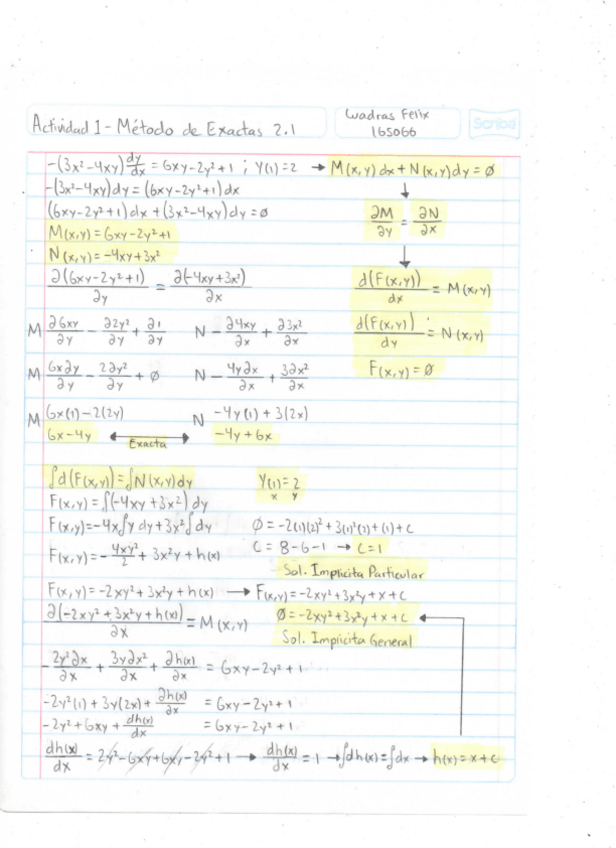 Actividad 1 - Método de Exactas 2.1
Cuadras Felix
165066
Scribe
-(3x²-4xy) dy/dx = 6xy-2y²+1 ; Y(1)=2 → M(x,y)dx+N(x,y)dy=∅
-(3x²-4xy)dy=(6xy-2y²+1)dx
(6xy-2y²+1)dx+(3x²-4xy)dy=∅
∂M/∂y = ∂N/∂x
M(x,y)=6xy-2y²+1
N(x,y)=-4xy+3x²
∂(6xy-2y²+1)/∂y = ∂(-4xy+3x²)/∂x
d(F(x,y))/dx = M(x,y)
M ∂6xy/∂y - ∂2y²/∂y + ∂1/∂y N - ∂4xy/∂x + ∂3x²/∂x
d(F(x,y))/dy = N(x,y)
M 6x∂y/∂y - 2∂y²/∂y + ∅ N - 4y∂x/∂x + 3∂x²/∂x
F(x,y)=∅
M 6x(1)-2(2y) N -4y(1)+3(2x)
6x-4y ↔ Exacta -4y+6x
∫d(F(x,y))=∫N(x,y)dy
F(x,y)=∫(-4xy+3x²)dy
F(x,y)=-4x∫y dy+3x²∫dy
F(x,y)=-4xy²/2+3x²y+h(x)
Y(1)=2
x y
∅=-2(1)(2)²+3(1)²(2)+(1)+c
C=8-6-1 → C=1
Sol. Implicita Particular
F(x,y)=-2xy²+3x²y+h(x) → F(x,y)=-2xy²+3x²y+x+c
∂(-2xy²+3x²y+h(x))/∂x = M(x,y)
∅=-2xy²+3x²y+x+c
Sol. Implicita General
-2y²∂x/∂x + 3y∂x²/∂x + ∂h(x)/∂x = 6xy-2y²+1
-2y²(1)+3y(2x)+∂h(x)/∂x = 6xy-2y²+1
-2y²+6xy+dh(x)/dx = 6xy-2y²+1
dh(x)/dx = 2y²-6xy+6xy-2y²+1 → dh(x)/dx=1 → ∫dh(x)=∫dx → h(x)=x+c